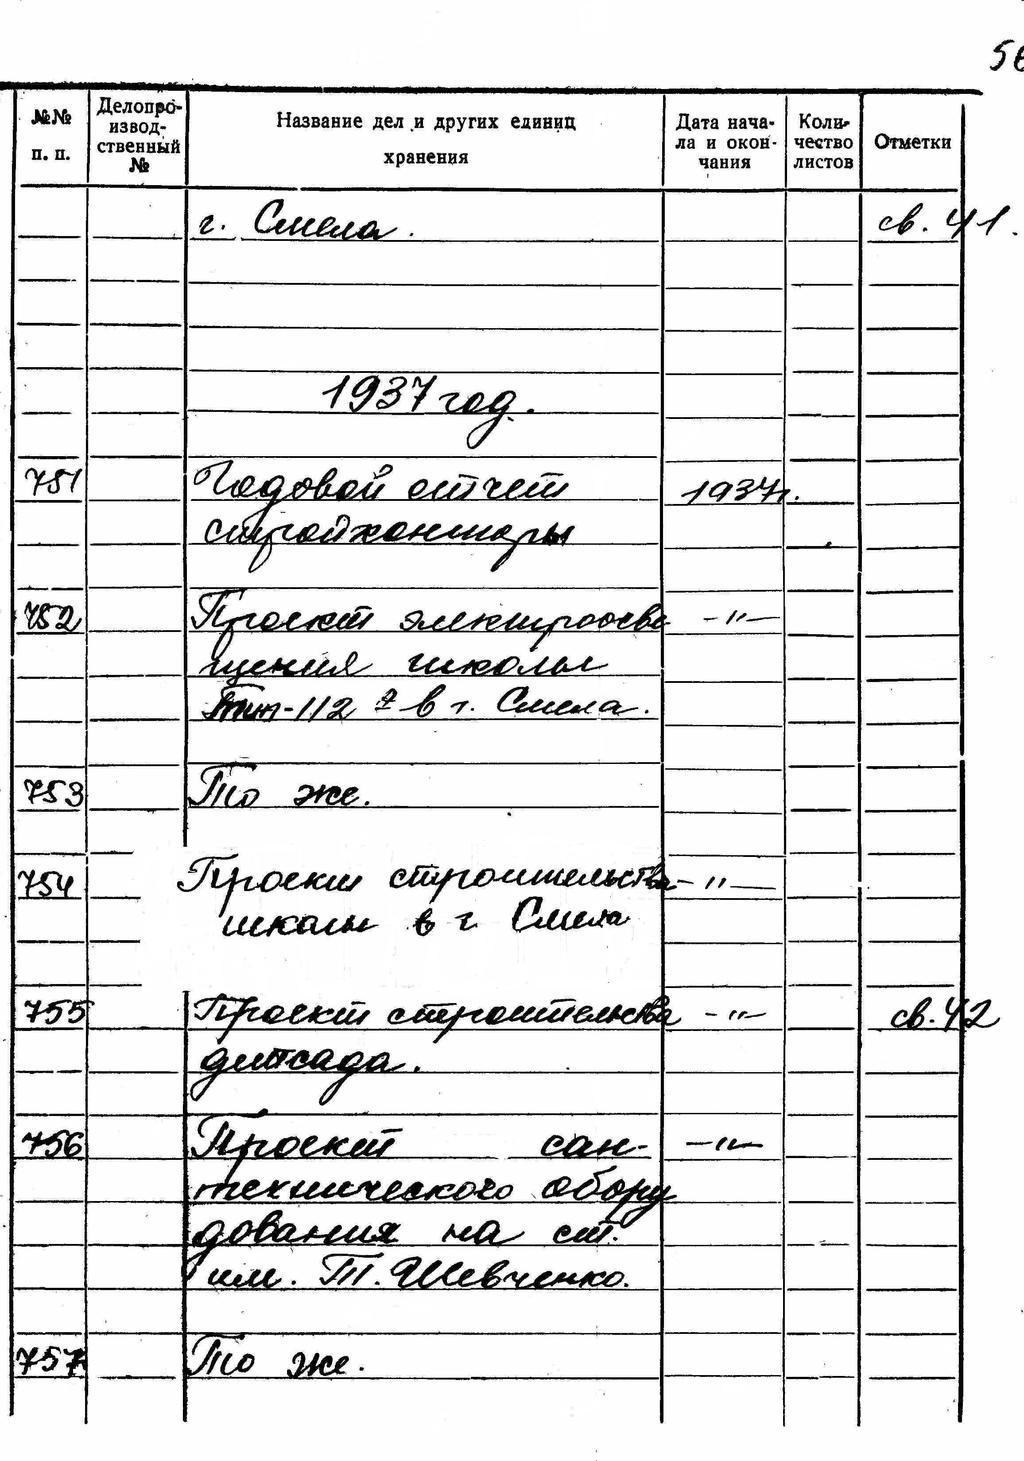 №№ п. п.
Делопро-
извод-
ственный
№
Название дел и других единиц
хранения
Дата нача-
ла и окон-
чания
Коли-
чество
листов
Отметки
г. Смела. св. 41.
1937 год.
751 Годовой отчет 1937г.
стройконторы
752 Проект электроосве -"-
щения школы
Тип-112 в г. Смела.
753 То же.
754 Проект строительства -"-
школы в г. Смела
755 Проект строительства -"- св. 42
детсада.
756 Проект сан- -"-
технического обору
дования на ст.
им. Т. Шевченко.
757 То же.